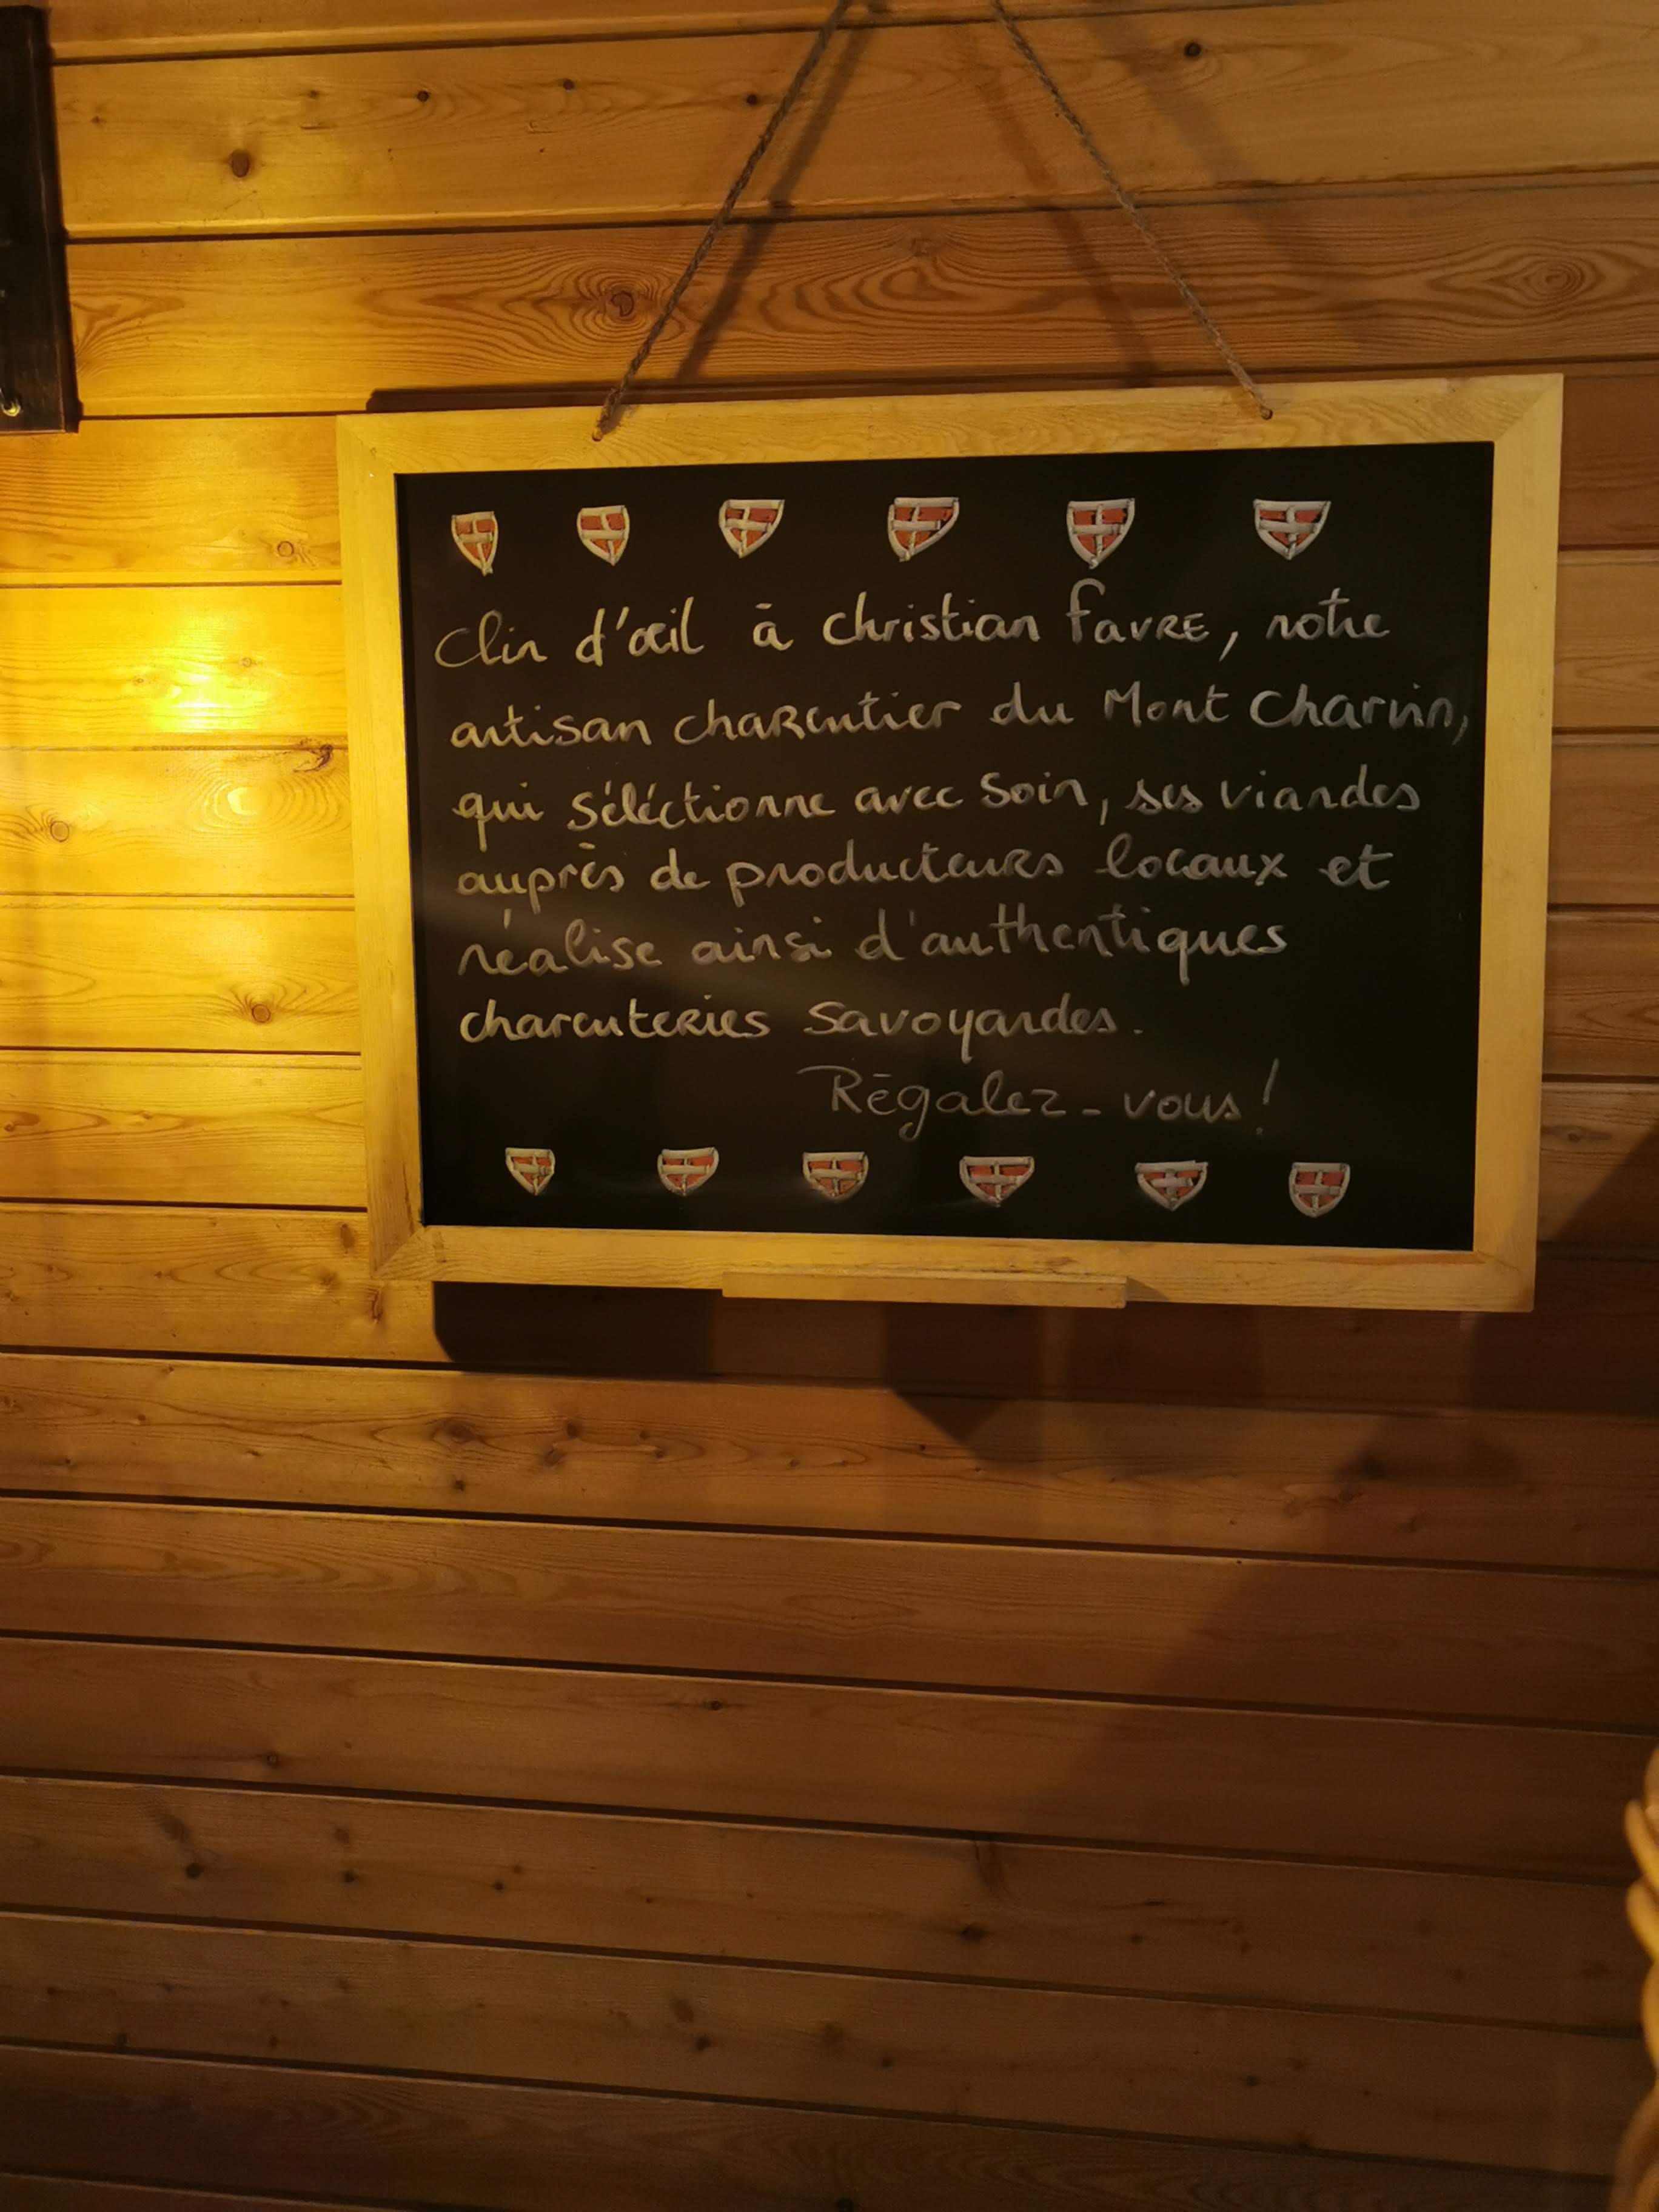 Clin d'œil à Christian FavRE, notre
artisan chaRcutier du Mont Charvin,
qui séléctionne avec soin, ses viandes
auprès de producteuRs locaux et
réalise ainsi d'authentiques
charcuteRies Savoyardes.
Régalez-vous!